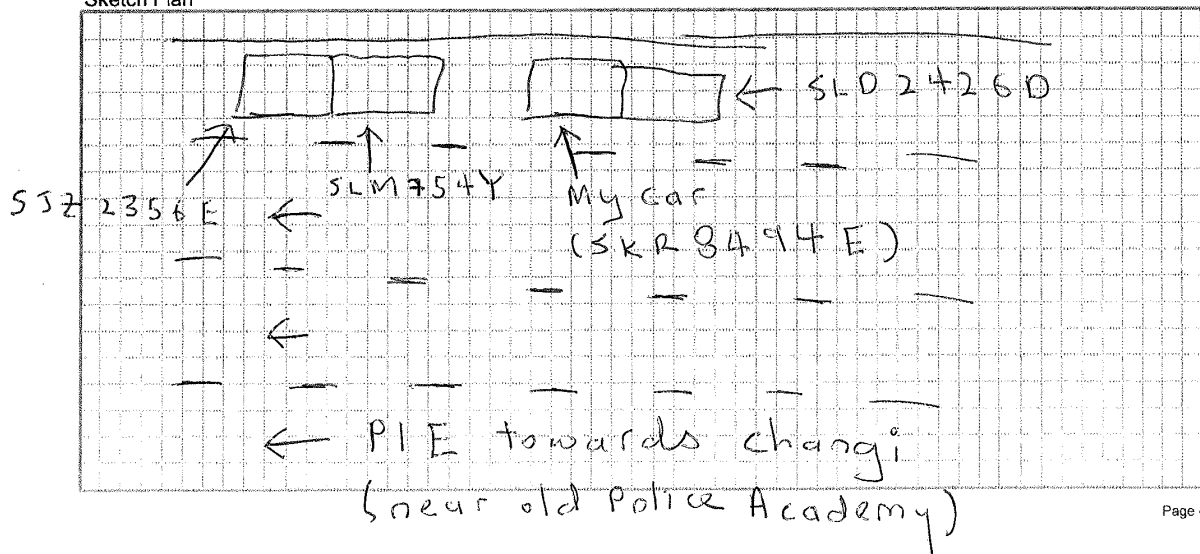 Sketch Plan
← SLD2426D
SJZ2356E
SLM754Y
My car
(SKR8494E)
←
←
← PIE towards changi
(near old Police Academy)
Page